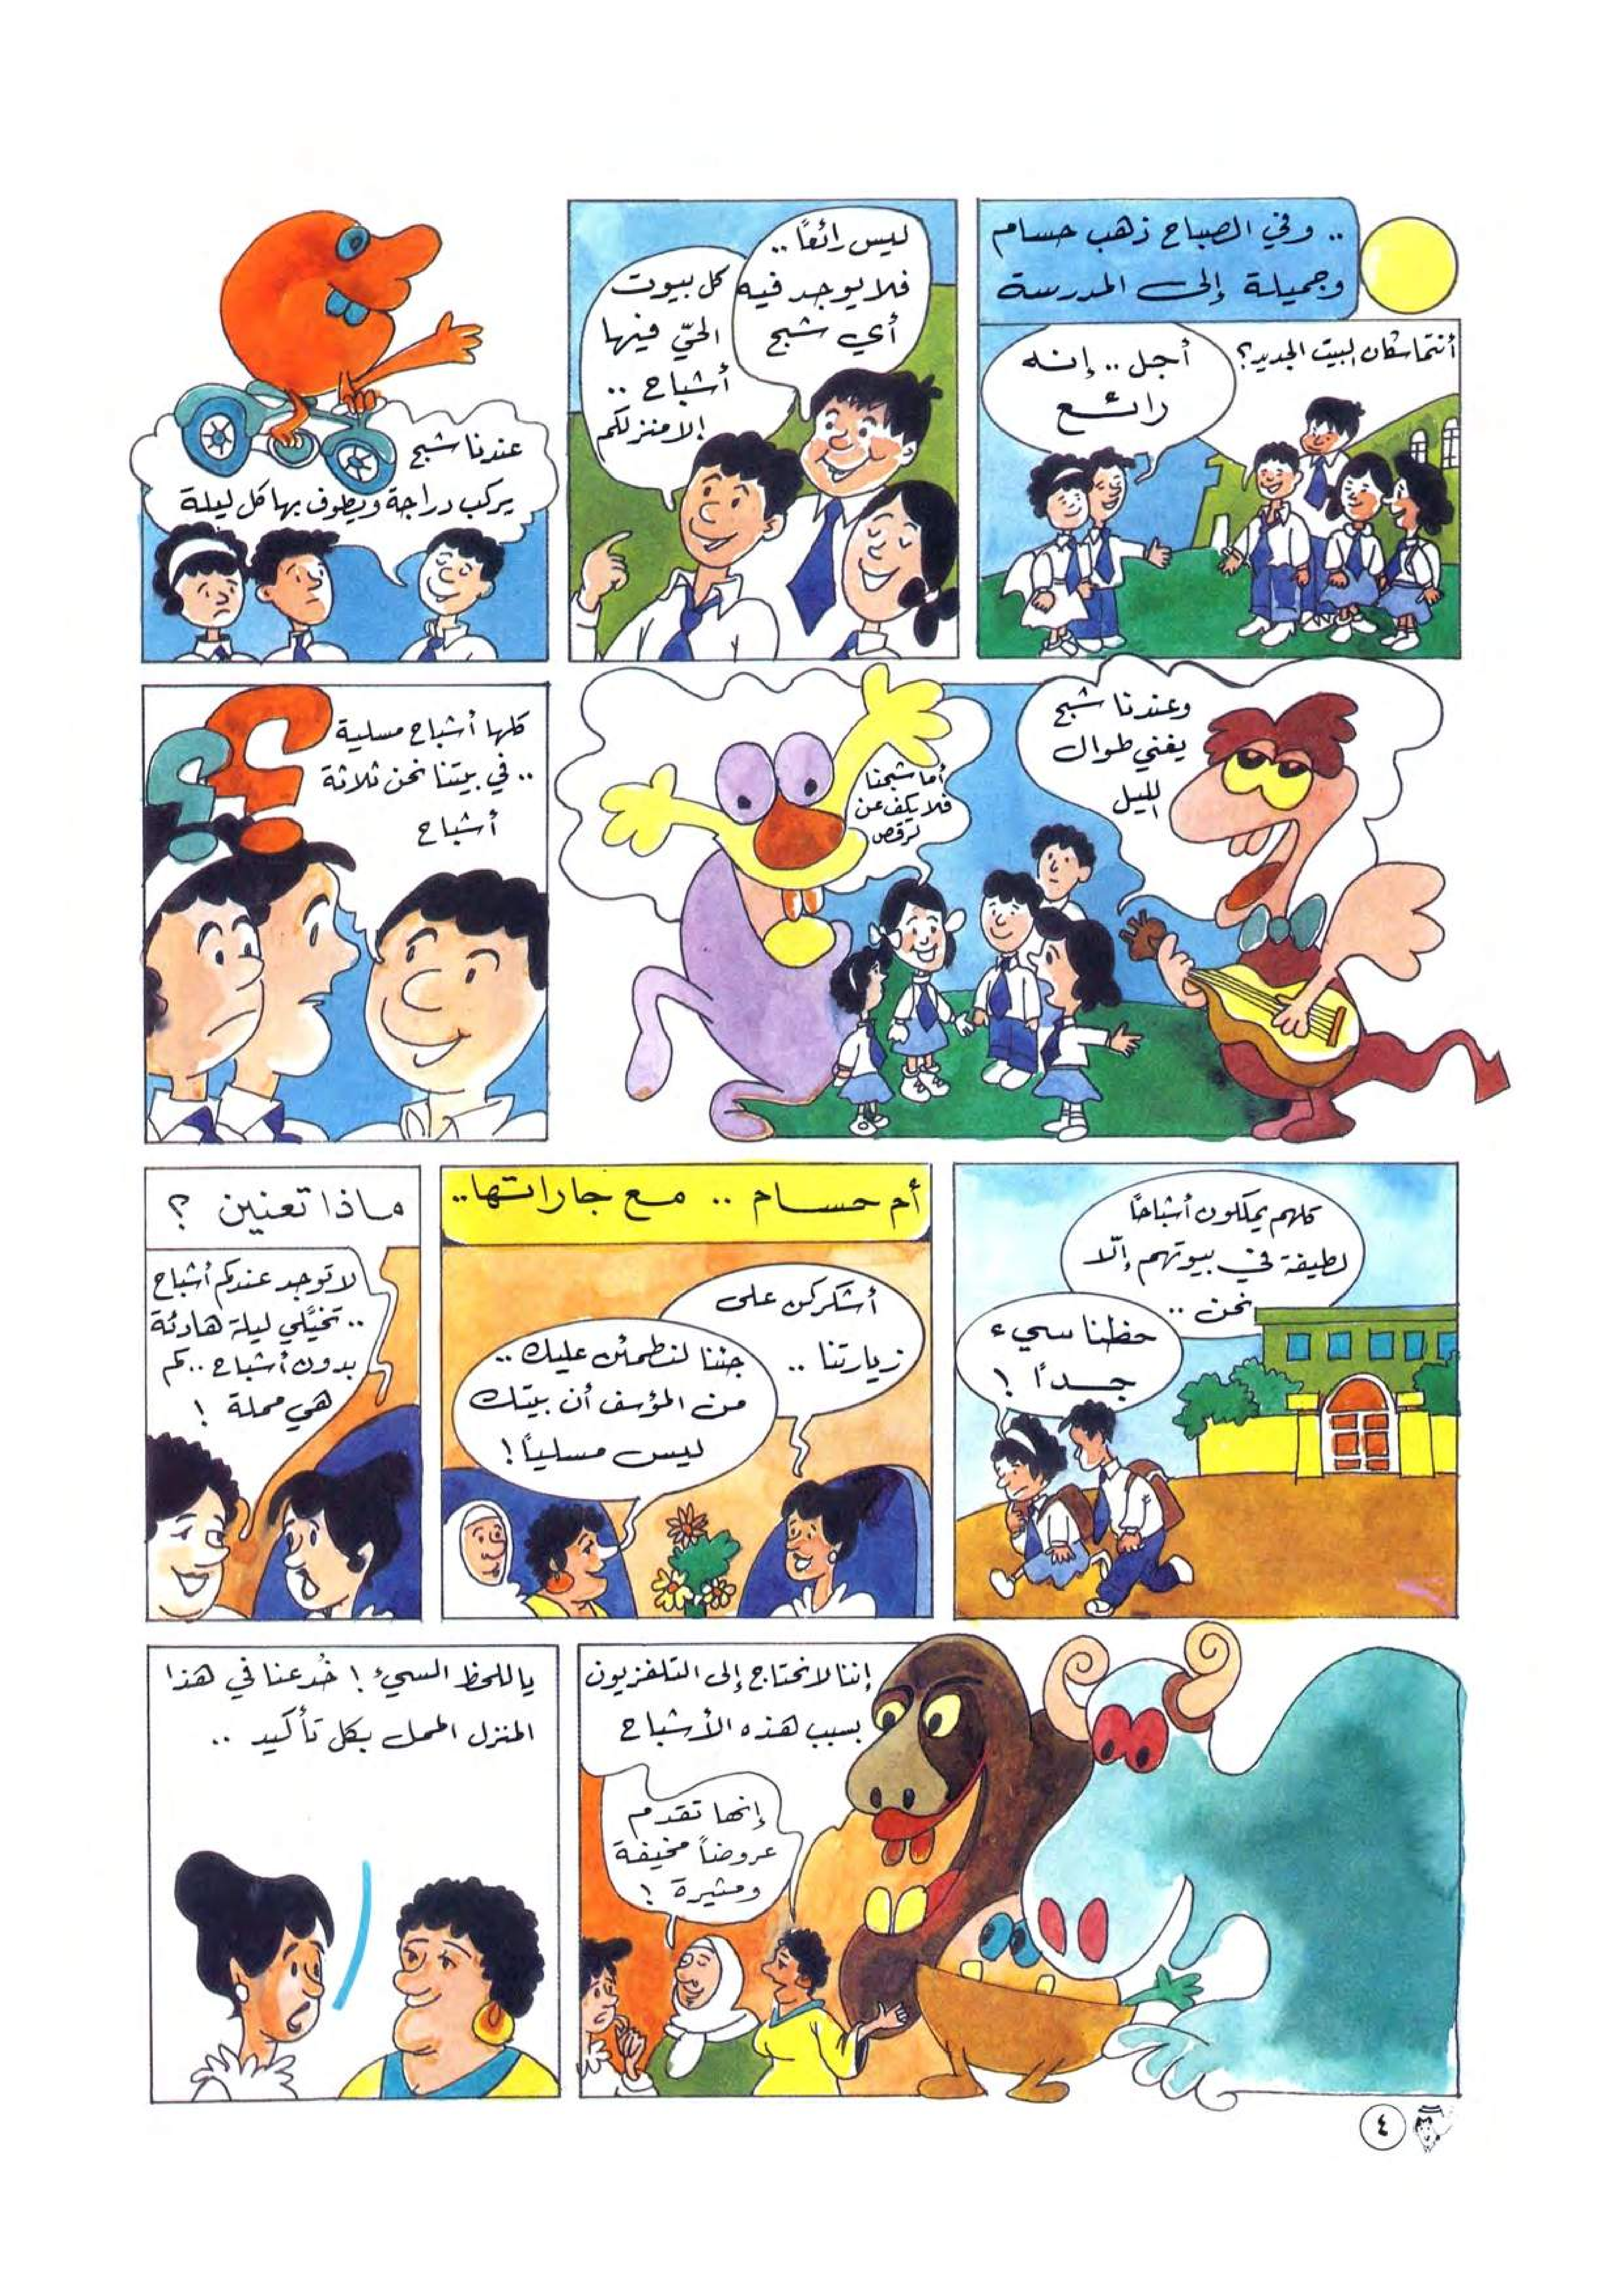 .. وفي الصباح ذهب حسام
وجميلة إلى المدرسة
أنتما سكان البيت الجديد؟
أجل .. إنه
رائع
ليس رائعاً ..
فلا يوجد فيه
أي شبح
كل بيوت
الحيّ فيها
أشباح ..
إلا منزلكم
عندنا شبح
يركب دراجة ويطوف بها كل ليلة
وعندنا شبح
يغني طوال
الليل
أما شبحنا
فلا يكف عن
الرقص
كلها أشباح مسلية
.. في بيتنا نحن ثلاثة
أشباح
؟ ؟
كلهم يملكون أشباحاً
لطيفة في بيوتهم إلّا
نحن ..
حظنا سيء
جداً !
أم حسام .. مع جاراتها..
أشكركن على
زيارتنا ..
جئنا لنطمئن عليك ..
من المؤسف أن بيتك
ليس مسلياً !
ماذا تعنين ؟
لا توجد عندكم أشباح
.. تخيّلي ليلة هادئة
بدون أشباح .. كم
هي مملة !
إننا لا نحتاج إلى التلفزيون
بسبب هذه الأشباح
إنها تقدم
عروضاً مخيفة
ومثيرة !
ياللحظ السيء ! خُدعنا في هذا
المنزل الممل بكل تأكيد ..
٤